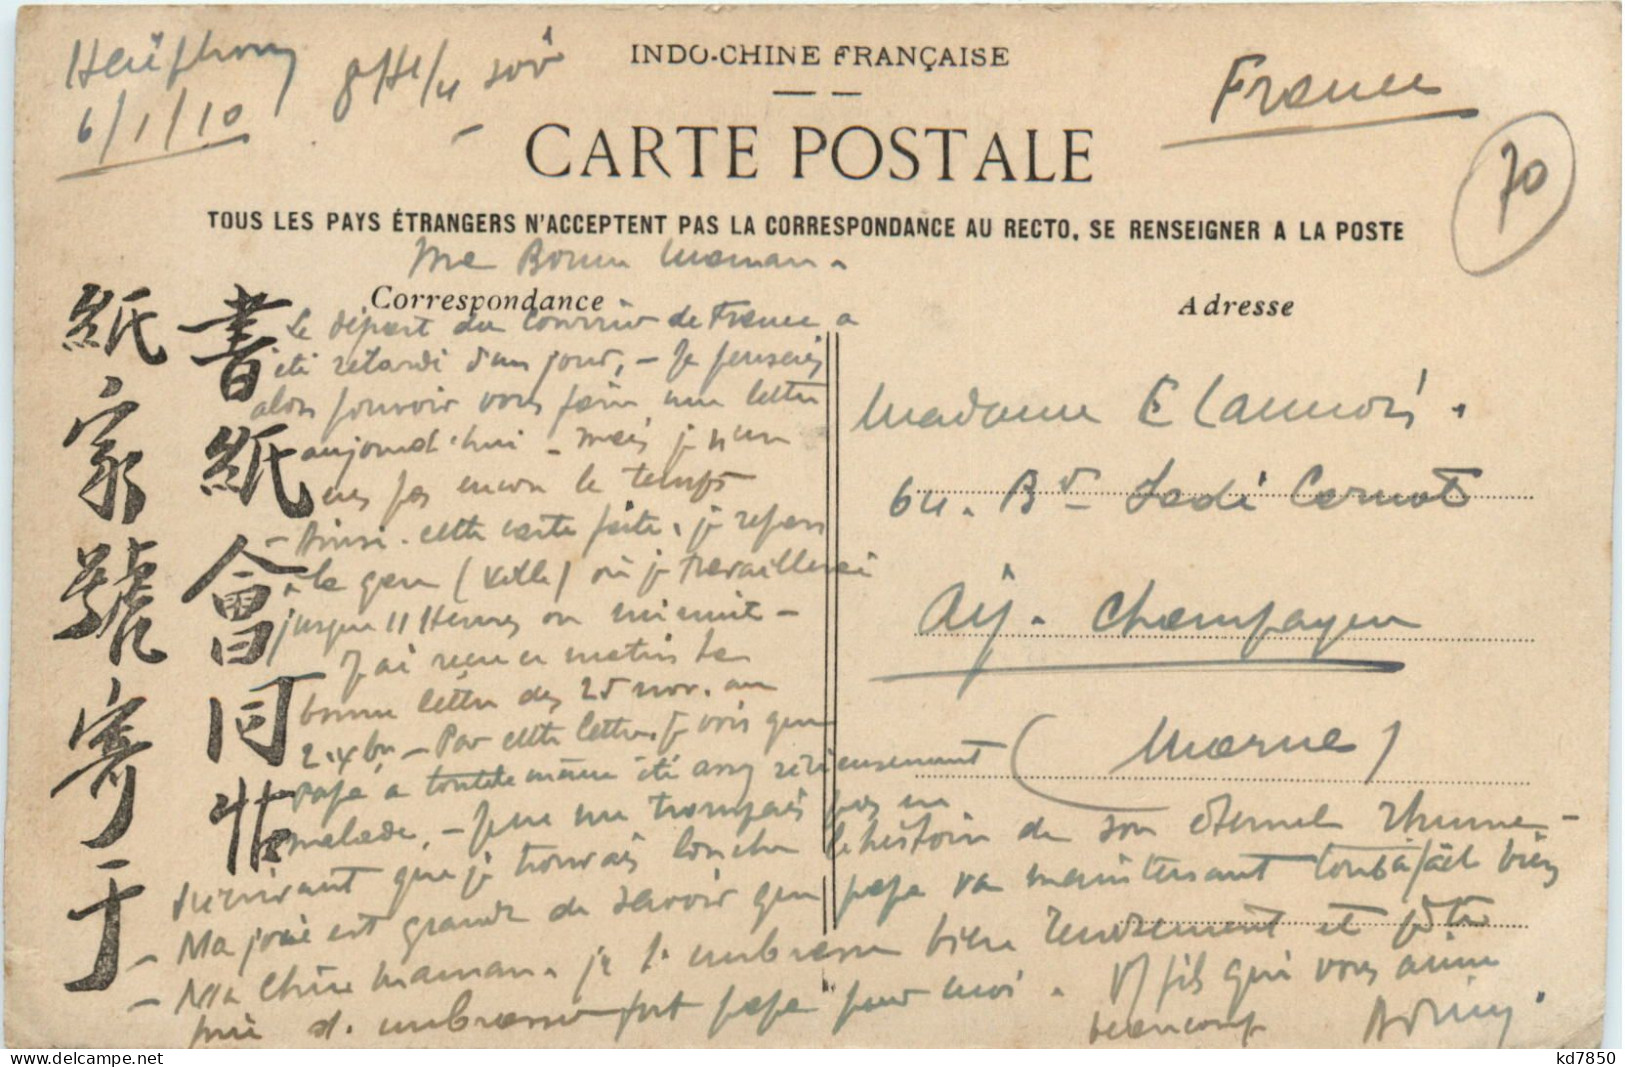 Haïphong
6/1/10
INDO-CHINE FRANÇAISE
France
70
CARTE POSTALE
TOUS LES PAYS ÉTRANGERS N'ACCEPTENT PAS LA CORRESPONDANCE AU RECTO, SE RENSEIGNER A LA POSTE
Ma Bonne maman.
Correspondance
Adresse
Le départ du courrier de France a
été retardé d'un jour, - Je pensais
alors pouvoir vous faire une lettre
aujourd'hui - mais je n'en
pas encore le temps
- Ainsi. cette carte faite, je repars
à la gare (Ville) où je travaillerai
jusque 11 Heures ou minuit -
J'ai reçu ce matin ta
bonne lettre du 25 nov. au
2. Xbre - Par cette lettre, je vois que
Papa a tout de même été assez sérieusement
malade, - Je ne me trompais pas en
écrivant que je trouvais louche l'histoire de son éternel rhume -
- Ma joie est grande de savoir que papa va maintenant tout à fait bien
- Ma chère maman. je t'embrasse bien tendrement et
prie d'embrasser fort papa pour moi. fils qui vous aime
beaucoup
書紙會同帖
紙家號寄于
Madame E Lannois.
64. Bd Sadi Carnot
Aÿ. Champagne
(Marne)
kd7850